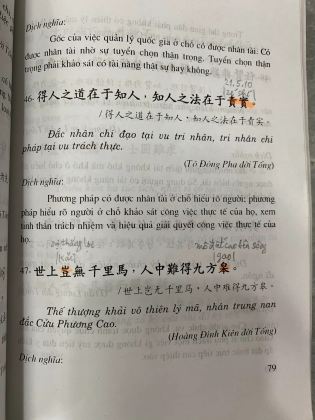 Dịch nghĩa:
Gốc của việc quản lý quốc gia ở chỗ có được nhân tài: Có
được nhân tài nhờ sự tuyển chọn thận trọng. Tuyển chọn thận
trọng phải khảo sát có tài năng thật sự hay không.
21.5.10
46. 得人之道在于知人，知人之法在于責實。
/得人之道在于知人，知人之法在于责实。
Đắc nhân chi đạo tại vu tri nhân, tri nhân chi
pháp tại vu trách thực.
(Tô Đông Pha đời Tống)
Dịch nghĩa:
Phương pháp có được nhân tài ở chỗ hiểu rõ người; phương
pháp hiểu rõ người ở chỗ khảo sát công việc thực tế của họ, xem
tinh thần trách nhiệm và hiệu quả giải quyết công việc thực tế của
họ.
47. 世上豈無千里馬，人中難得九方皋。
/世上岂无千里马，人中难得九方皋。
Thế thượng khải vô thiên lý mã, nhân trung nan
đắc Cửu Phương Cao.
(Hoàng Đình Kiên đời Tống)
Dịch nghĩa:
79